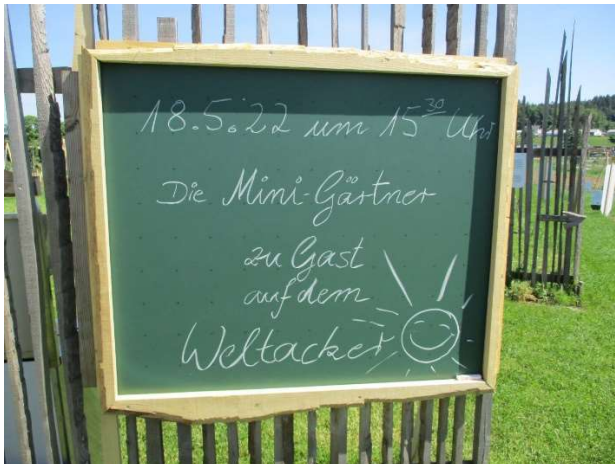 18.5.22 um 15³⁰ Uhr
Die Mini-Gärtner
zu Gast
auf dem
Weltacker